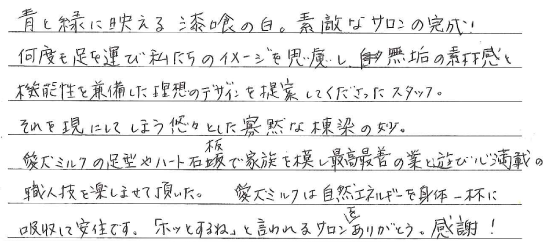 青と緑に映える漆喰の白。素敵なサロンの完成!
何度も足を運び私たちのイメージを思慮し、無垢の素材感と
機能性を兼備した理想のデザインを提案してくださったスタッフ。
それを現にしてしまう悠々とした寡黙な棟梁の妙。
愛犬ミルクの足型やハート石板で家族を模し最高最善の業と遊び心満載の
職人技を楽しませて頂いた。 愛犬ミルクは自然エネルギーを身体一杯に
吸収して安住です。「ホッとするね」と言われるサロンをありがとう。感謝!